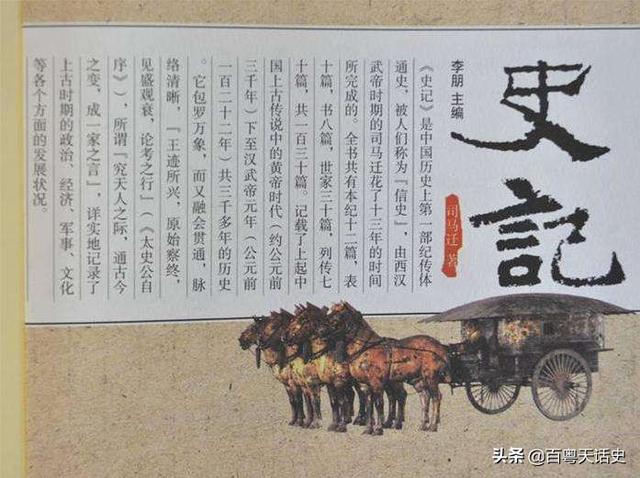 史記
司马迁 著
李朋 主编
《史记》是中国历史上第一部纪传体
通史,被人们称为“信史”,由西汉
武帝时期的司马迁花了十三年的时间
所完成的。全书共有本纪十二篇,表
十篇,书八篇,世家三十篇,列传七
十篇,共一百三十篇。记载了上起中
国上古传说中的黄帝时代(约公元前
三千年)下至汉武帝元年(公元前
一百二十二年)共三千多年的历史
。它包罗万象,而又融会贯通,脉
络清晰,“王迹所兴,原始察终,
见盛观衰,论考之行”(《太史公自
序》),所谓“究天人之际,通古今
之变,成一家之言”,详实地记录了
上古时期的政治、经济、军事、文化
等各个方面的发展状况。
头条 @百粤天话史